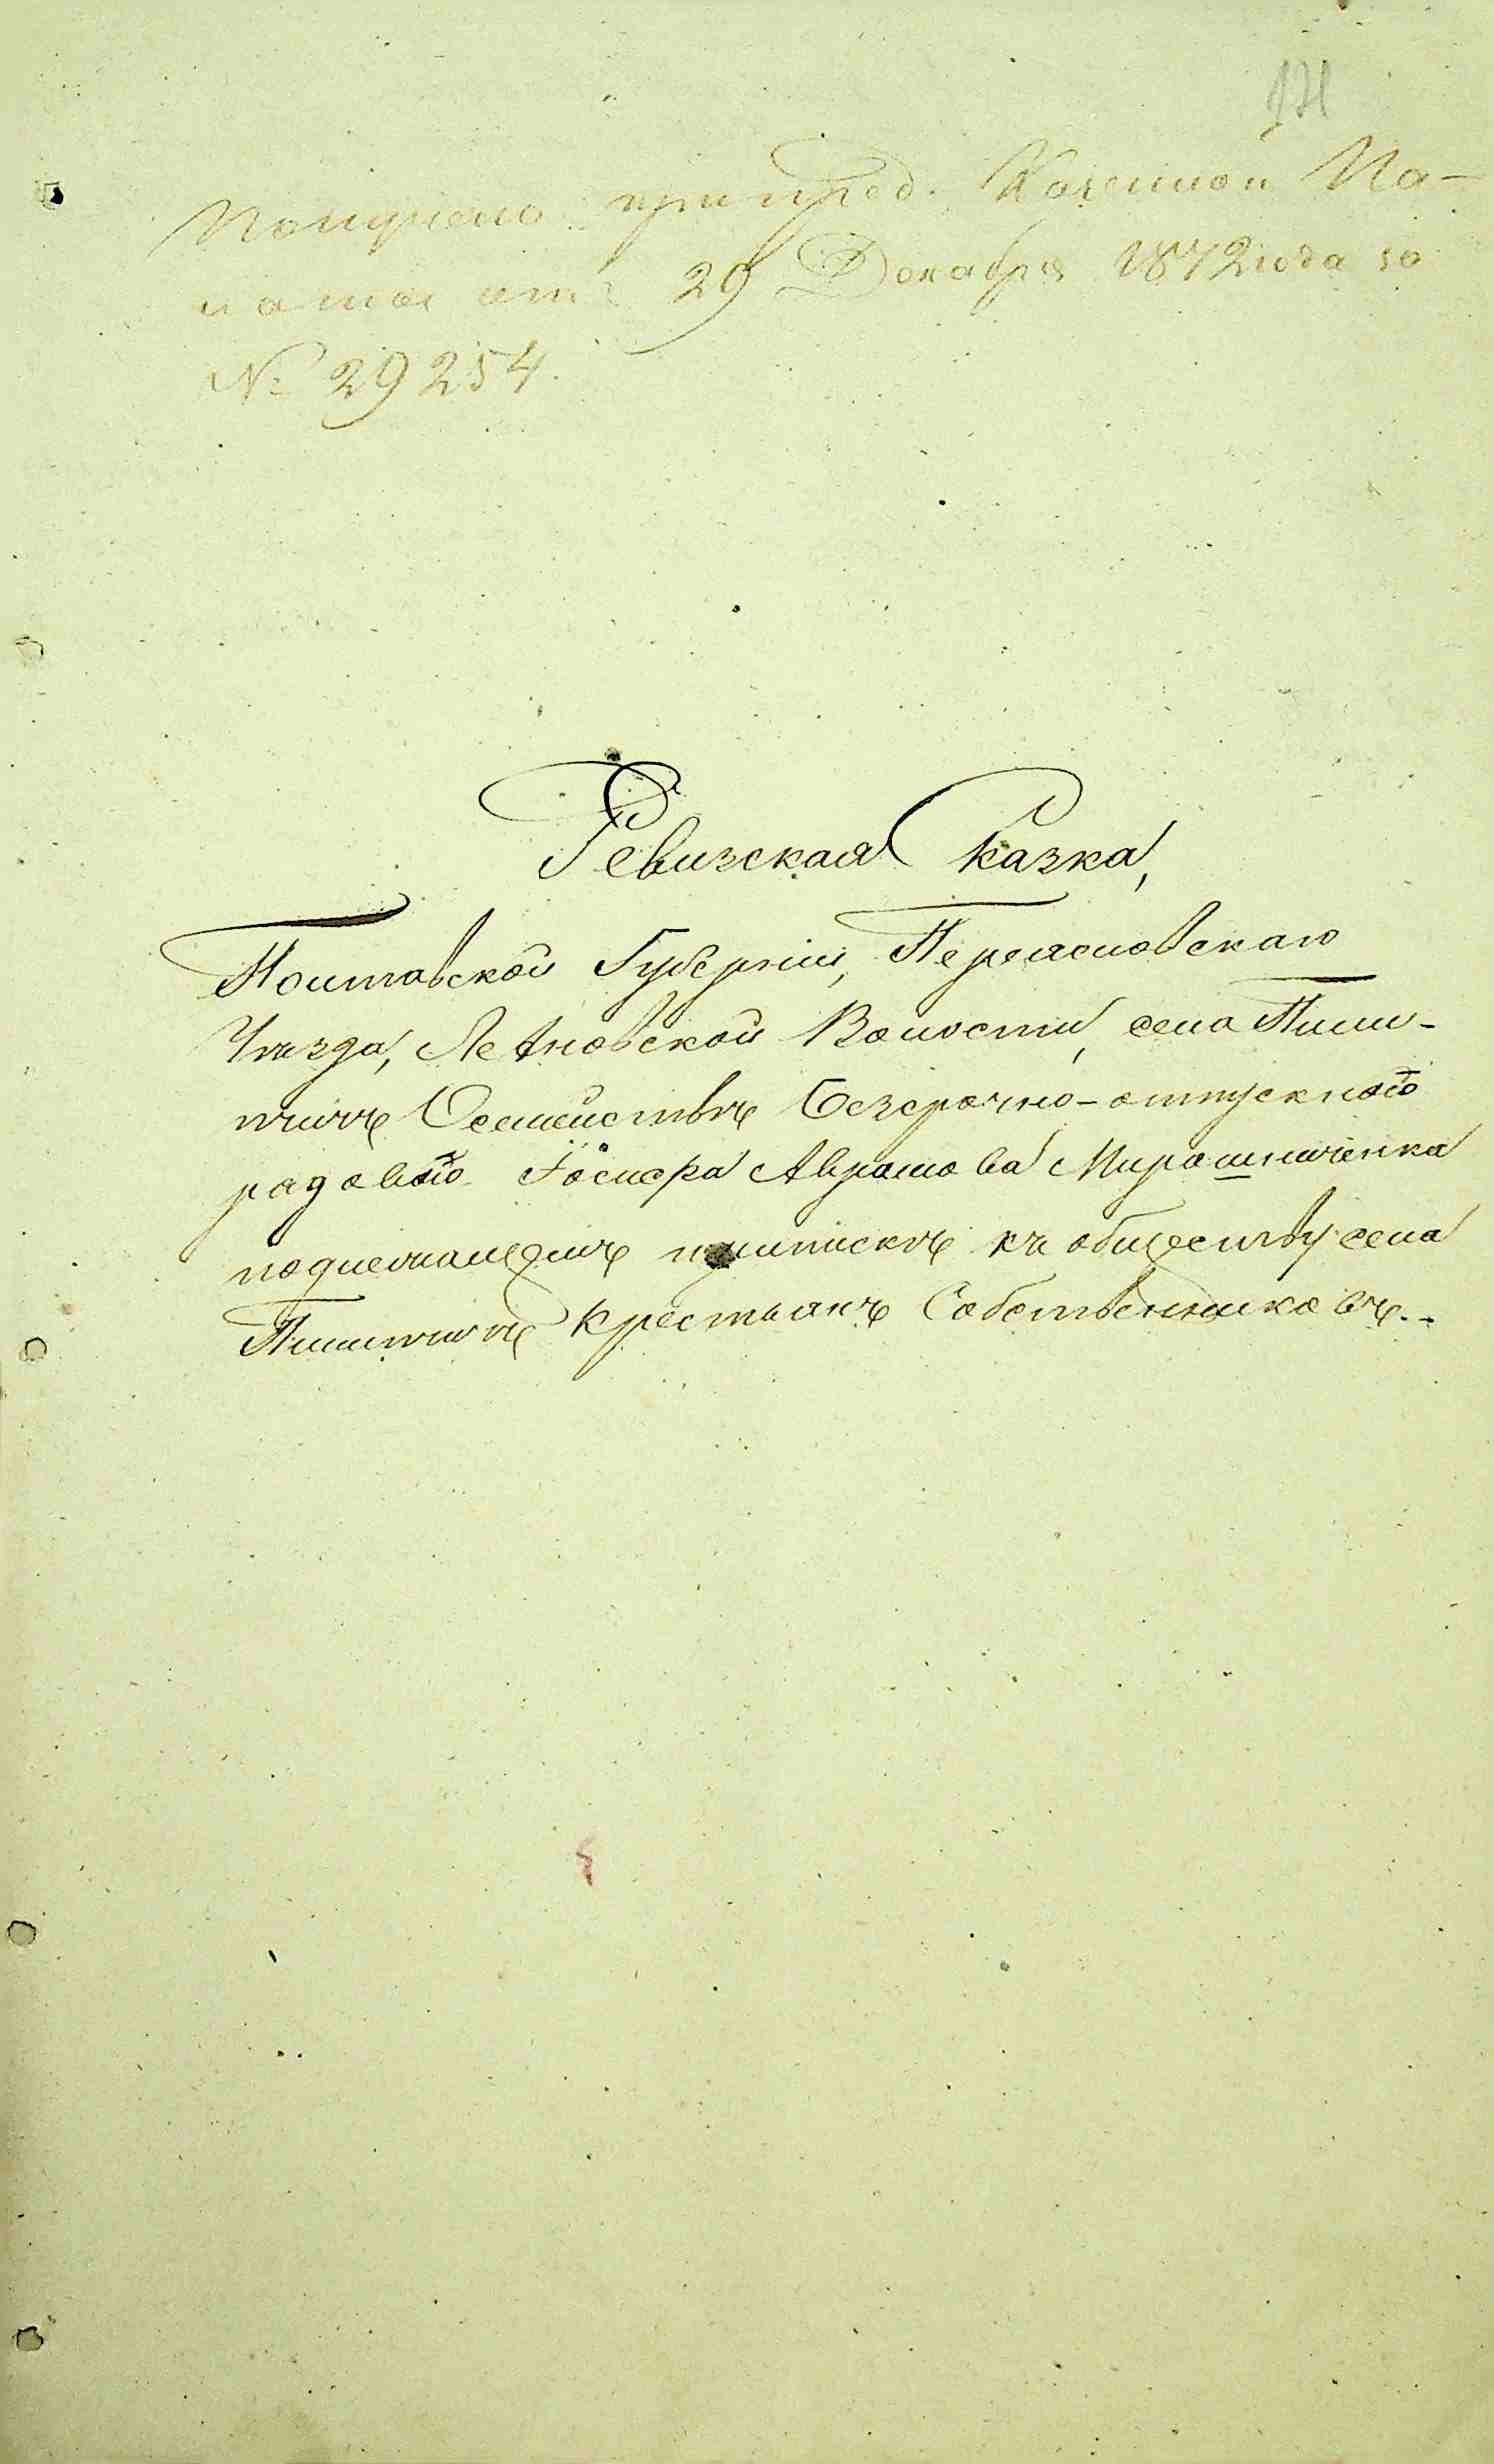 171
Получено при пред. Казенной Па-
латы отъ 29 Декабря 1872 года за
№ 29254.
Ревизская Сказка,
Полтавской Губерніи, Переяславскаго
Уѣзда, Леляковской Волости, села Пили-
пчичъ Семействъ безсрочно-отпускного
рядового Іосифа Аврамова Мирошниченка
подлежащемъ припискѣ къ обществу села
Пилипчичъ крестьянъ Собственниковъ.-